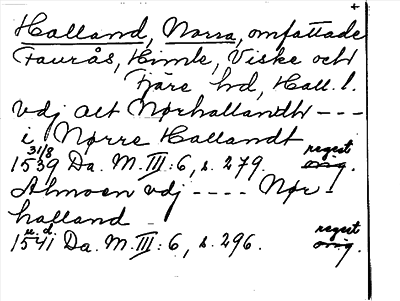 +
Halland, Norra, omfattade
Faurås, Himle, Viske och
Fjäre hd, Hall. l.
vdj alt Nørhallandh ---
i Nørre Hallandt
31/8 regest
1539 Da. M. III: 6, s. 279. orig.
Almoen vdj ---- Nør-
halland
u. d. regest
1541 Da. M. III: 6, s. 296. orig.